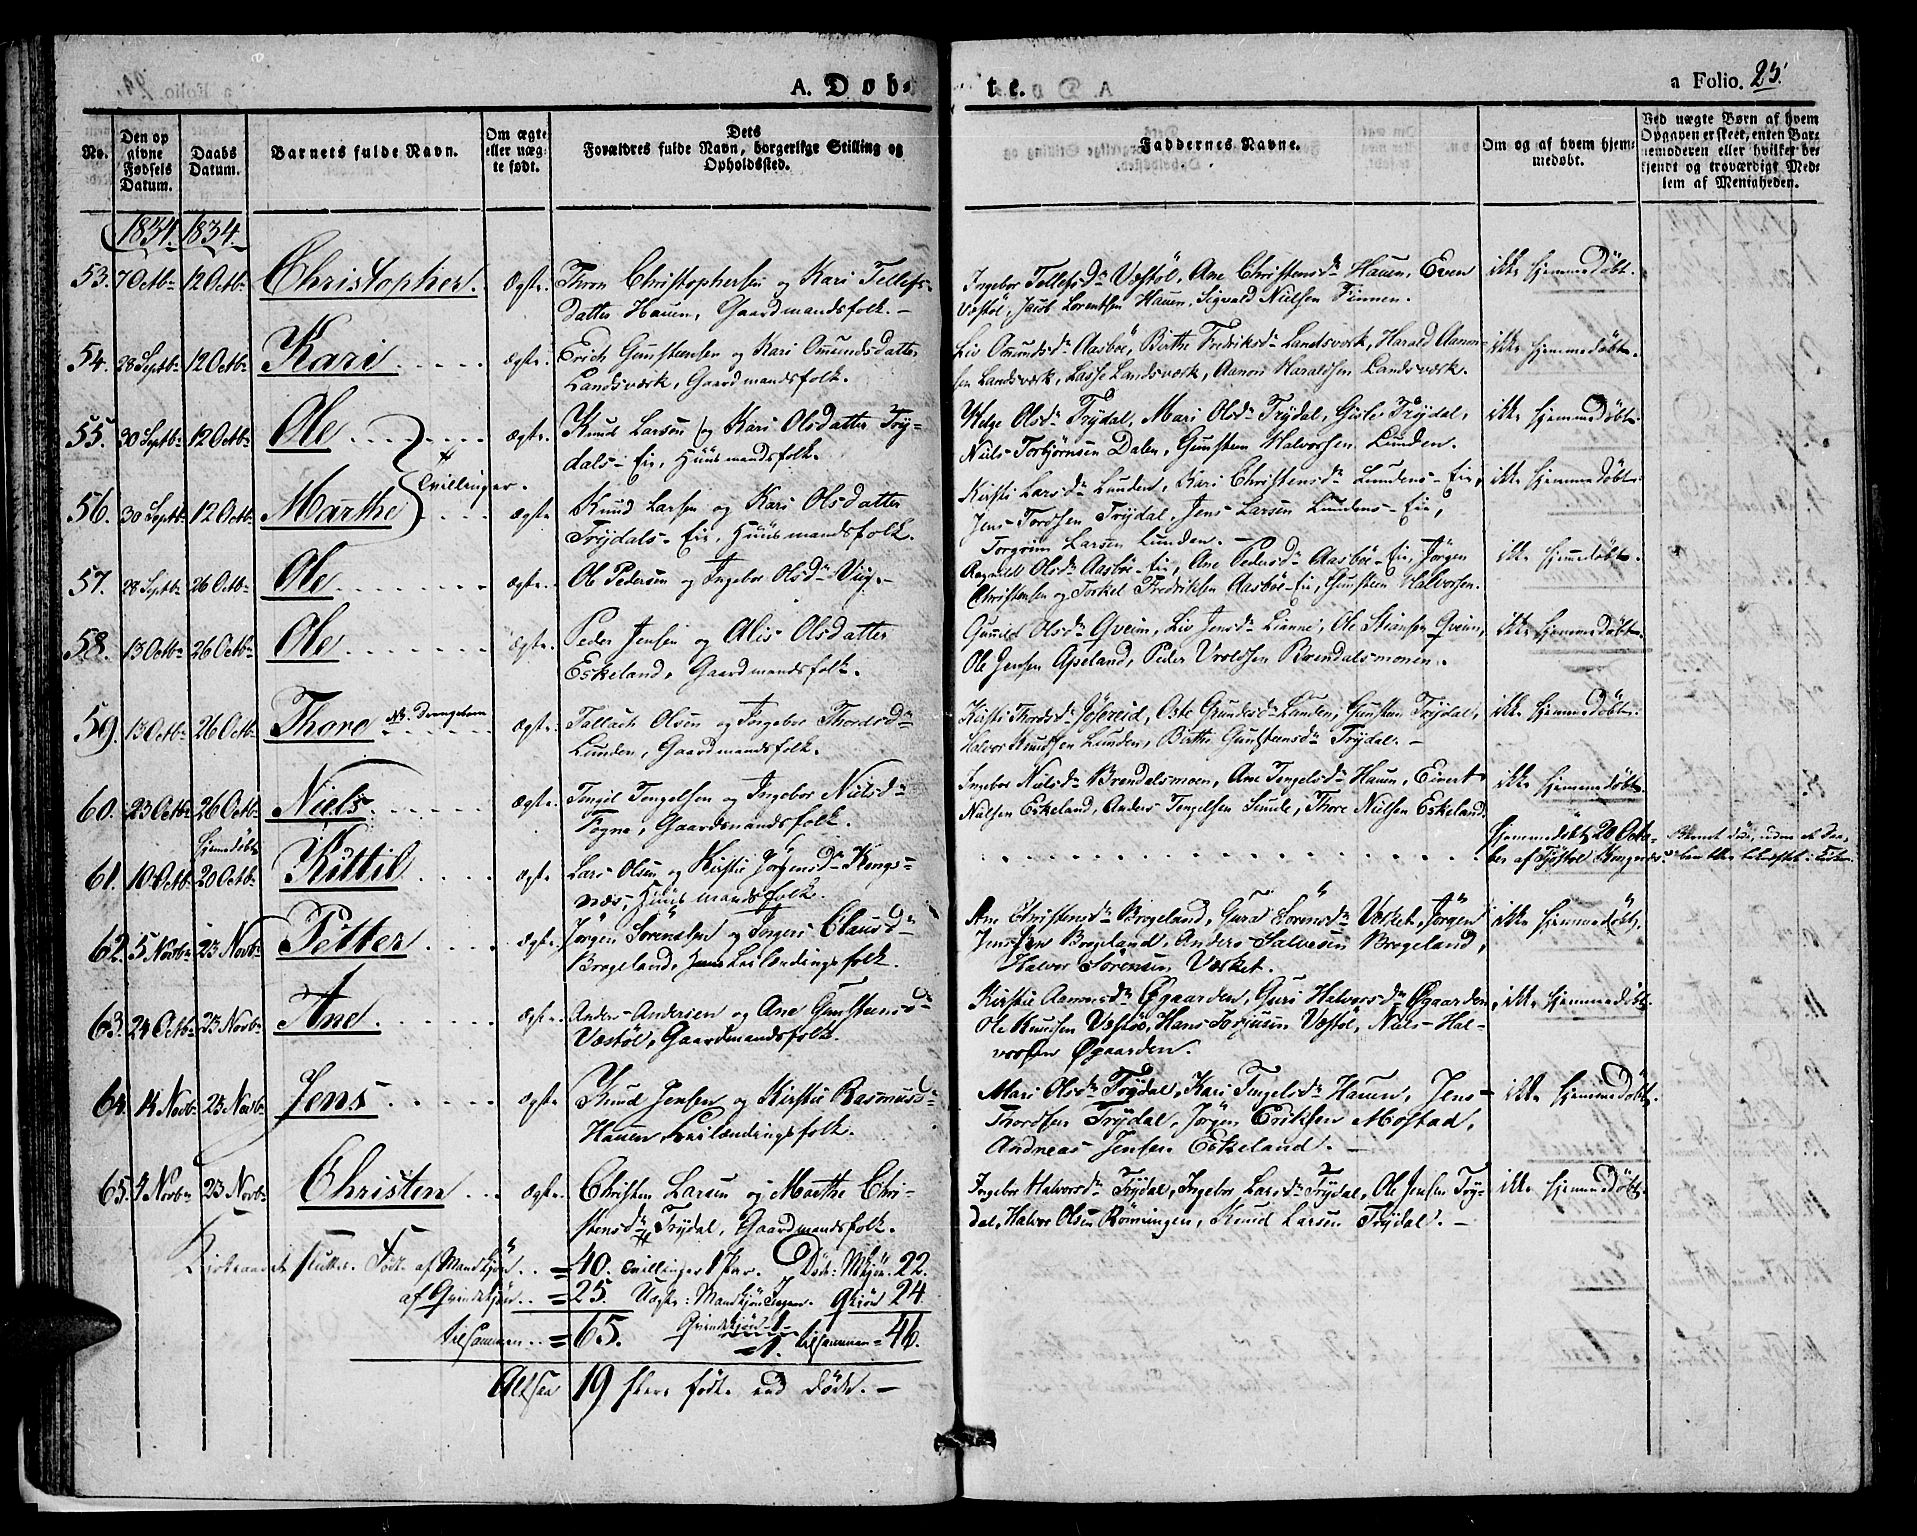 A. Døbte.
a Folio. 25.
No.
Den opgivne Fødsels Datum.
Daabs Datum.
Barnets fulde Navn.
Om ægte eller uægte født.
Dets Forældres fulde Navn, borgerlige Stilling og Opholdssted.
Faddernes Navne.
Om og af hvem hjemmedøbt.
Ved uægte Børn af hvem Opgaven er skeet, enten Barnemoderen eller hvilket bekjendt og troværdigt Medlem af Menigheden.
1834. 1834.
53. 7 Octbr 12 Octbr Christopher. Ægte. Thom Christophersen og Kari Tellefs-
datter Hauen, Gaardmandsfolk.-
Ingebor Tellefsdr Væstöl, Ane Christensdr Hauen, Even
Væstöl, Jacob Lorentsen Hauen, Sigvald Nielsen Finnen.
ikke hjemmedøbt.
54. 28 Septbr 12 Octbr Kari ægte. Erich Gunstensen og Kari Omundsdatter
Landsværk, Gaardmandsfolk.
Liv Omundsdr Aasböe, Birthe Fredriksdr Landsværk, Harald Aanon-
sen Landsværk, Lasse Landsværk, Aanon Haraldsen Landsværk.
ikke hjemmedøbt.
55. 30 Septbr 12 Octbr Ole ægte. Knud Larsen og Kari Olsdatter Try-
dals-Eie, Huusmandsfolk.
Helge Olsdr Trydal, Mari Olsdr Trydal, Gisle Trydal,
Niels Torbjörnsen Dalen, Gunsten Halvorsen Lunden.
ikke hjemmedøbt.
Tvillinger.
56. 30 Septbr 12 Octbr Marthe ægte Knud Larsen og Kari Olsdatter
Trydals-Eie, Huusmandsfolk.
Kirsti Larsdr Lunden, Kari Christensdr Lundens-Eie,
Jens Tordsen Trydal, Jens Larsen Lundens-Eie,
Torgrim Larsen Lunden.-
ikke hjemmedøbt.
57. 28 Septbr 26 Octbr Ole ægte. Ole Pedersen og Ingebor Olsdr Viig.-
Ragnild Olsdr Aasböe-Eie, Ane Pedersdr Aasböe-Eie, Jörgen
Christensen og Torkel Fredriksen Aasböe-Eie, Gunsten Halvorsen.
ikke hjemmedøbt.
58. 13 Octbr 26 Octbr Ole ægte. Peder Jensen og Alis Olsdatter
Eskeland, Gaardmandsfolk.
Gunild Olsdr Qveim, Liv Jensdr Lianne, Ole Stiansen Qveim,
Ole Jensen Apeland, Peder Vroldsen Brændalsmonen.
ikke hjemmedøbt.
59. 13 Octbr 26 Octbr Thore NB. Drengebarn ægte. Tallack Olsen og Ingebor Thordsdr
Lunden, Gaardmandsfolk.
Kirsti Thordsdr Josereid, Oste Grundesdr Lunden, Gunsten Trydal,
Halvor Knudsen Lunden, Birthe Gunstensdr Trydal.-
ikke hjemmedøbt.
60. 23 Octbr 26 Octbr Niels. ægte. Tengel Tengelsen og Ingebor Nielsdr
Fogne, Gaardmandsfolk.
Ingebor Nielsdr Brendalsmoen, Ane Tengelsdr Hauen, Eivert
Nielsen Eskeland, Anders Tengelsen Sunde, Thore Nielsen Eskeland.
ikke hjemmedøbt.
61. 10 Octbr hjemmedøbt 20 Octbr Kittil ægte Lars Olsen og Kirstie Jörgensdr Kongs-
næs, Huusmandsfolk.
hjemmedøbt 20 Octo-
ber af
62. 5 Novbr 23 Novbr Petter ægte. Jörgen Sörensen og Inger Clausdr
Brogeland, Leilændingsfolk.
Ane Christensdr Brogeland, Guro Sörensdr Værket, Jörgen
Jensen Brogeland, Anders Salvesen Brogeland,
Halvor Sörensen Værket.
ikke hjemmedøbt.
63. 24 Octbr 23 Novbr Ane ægte. Anders Andersen og Ane Gunstensdr
Væstöl, Gaardmandsfolk.
Kirstie Aanonsdr Øgaarden, Guri Halvorsdr Øgaarden,
Ole Knudsen Væstöl, Hans Torjusen Væstöl, Niels Hal-
vorsen Øgaarden.
ikke hjemmedøbt.
64. 14 Novbr 23 Novbr Jens ægte Knud Jensen og Kirstie Rasmusdr
Hauen, Leilændingsfolk.
Mari Olsdr Trydal, Kari Tengelsdr Hauen, Jens
Thordsen Trydal, Jörgen Eriksen Mostad,
Andreas Jensen Eskeland.-
ikke hjemmedøbt.
65. 4 Novbr 23 Novbr Christen ægte. Christen Larsen og Marthe Chri-
stensdr Trydal, Gaardmandsfolk.
Ingebor Halvorsdr Trydal, Ingebor Larsdr Trydal, Ole Jensen Try-
dal, Halvor Olsen Rönningen, Knud Larsen Trydal.-
ikke hjemmedøbt.
Kirkeaaret sluttet. Födte af Mandkjön = 40. Tvillinger 1 Par. Döde: Mkjön. 22.
af Qvindekjön = 25. Uægte: Mandkjön Ingen. Qkjön 24
tilsammen = 65. Qvindekjön - 1 - = 1. tilsammen = 46.
Altsaa 19 flere födte end döde.-